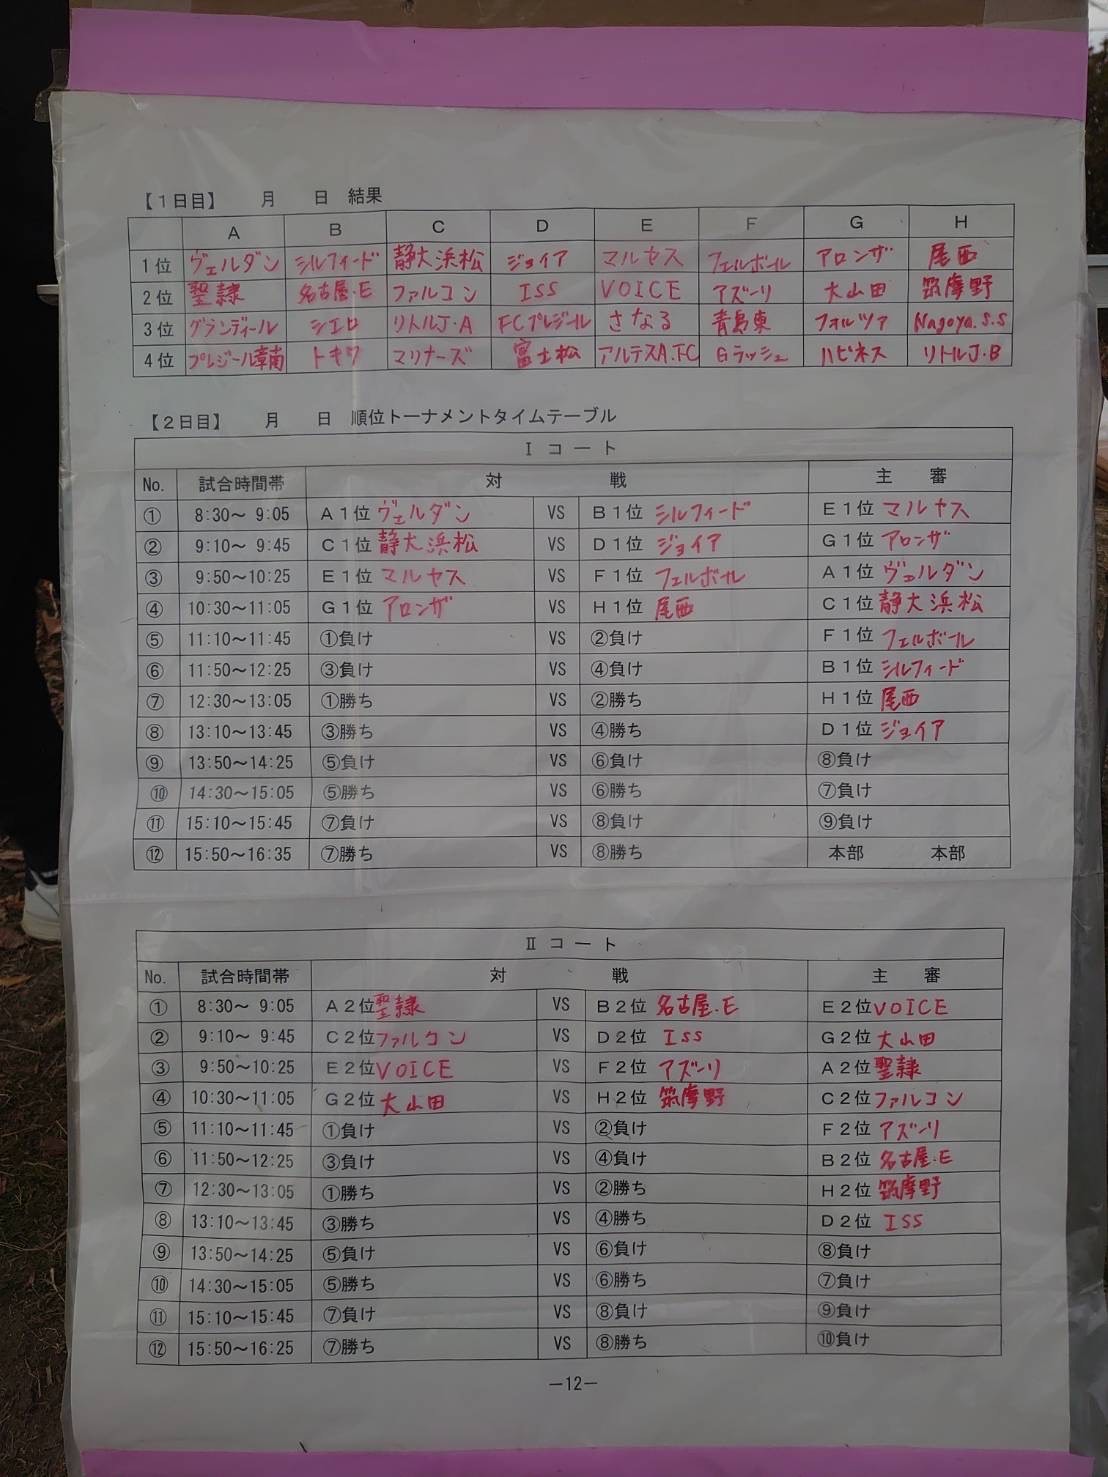 【１日目】　月　日　結果
A B C D E F G H
１位 ヴェルダン シルフィード 静大浜松 ジョイア マルヤス フェルボール アロンザ 尾西
２位 聖隷 名古屋.E ファルコン ISS VOICE アズーリ 大山田 筑摩野
３位 グランディール シエロ リトルJ・A FCプレジール さなる 青島東 フォルツァ Nagoya.S.S
４位 プレジール韋南 トキワ マリナーズ 富士松 アルテスA.FC Gラッシュ ハピネス リトルJ・B
【２日目】　月　日　順位トーナメントタイムテーブル
Ⅰ コート
No. 試合時間帯 対 戦 主 審
① 8:30～ 9:05 A１位 ヴェルダン VS B１位 シルフィード E１位 マルヤス
② 9:10～ 9:45 C１位 静大浜松 VS D１位 ジョイア G１位 アロンザ
③ 9:50～10:25 E１位 マルヤス VS F１位 フェルボール A１位 ヴェルダン
④ 10:30～11:05 G１位 アロンザ VS H１位 尾西 C１位 静大浜松
⑤ 11:10～11:45 ①負け VS ②負け F１位 フェルボール
⑥ 11:50～12:25 ③負け VS ④負け B１位 シルフィード
⑦ 12:30～13:05 ①勝ち VS ②勝ち H１位 尾西
⑧ 13:10～13:45 ③勝ち VS ④勝ち D１位 ジョイア
⑨ 13:50～14:25 ⑤負け VS ⑥負け ⑧負け
⑩ 14:30～15:05 ⑤勝ち VS ⑥勝ち ⑦負け
⑪ 15:10～15:45 ⑦負け VS ⑧負け ⑨負け
⑫ 15:50～16:35 ⑦勝ち VS ⑧勝ち 本部 本部
Ⅱ コート
No. 試合時間帯 対 戦 主 審
① 8:30～ 9:05 A２位 聖隷 VS B２位 名古屋.E E２位 VOICE
② 9:10～ 9:45 C２位 ファルコン VS D２位 ISS G２位 大山田
③ 9:50～10:25 E２位 VOICE VS F２位 アズーリ A２位 聖隷
④ 10:30～11:05 G２位 大山田 VS H２位 筑摩野 C２位 ファルコン
⑤ 11:10～11:45 ①負け VS ②負け F２位 アズーリ
⑥ 11:50～12:25 ③負け VS ④負け B２位 名古屋.E
⑦ 12:30～13:05 ①勝ち VS ②勝ち H２位 筑摩野
⑧ 13:10～13:45 ③勝ち VS ④勝ち D２位 ISS
⑨ 13:50～14:25 ⑤負け VS ⑥負け ⑧負け
⑩ 14:30～15:05 ⑤勝ち VS ⑥勝ち ⑦負け
⑪ 15:10～15:45 ⑦負け VS ⑧負け ⑨負け
⑫ 15:50～16:25 ⑦勝ち VS ⑧勝ち ⑩負け
―12―